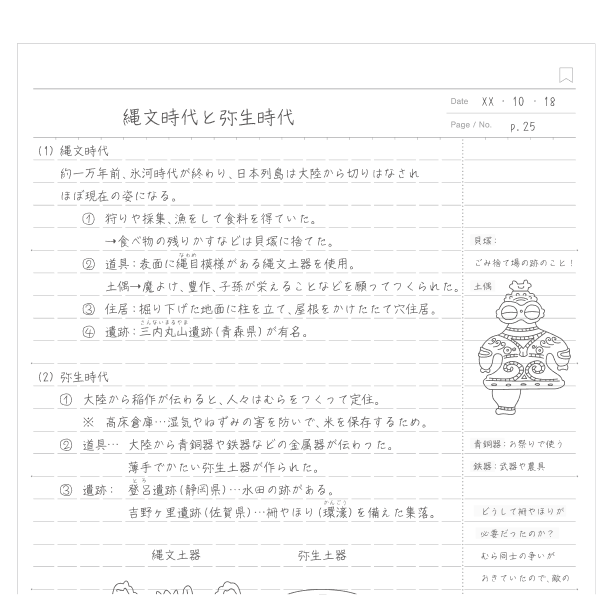 Date XX・10・18
縄文時代と弥生時代
Page / No. p.25
(1) 縄文時代
約一万年前、氷河時代が終わり、日本列島は大陸から切りはなされ
ほぼ現在の姿になる。
① 狩りや採集、漁をして食料を得ていた。
→食べ物の残りかすなどは貝塚に捨てた。
貝塚:
なわめ
② 道具:表面に縄目模様がある縄文土器を使用。
ごみ捨て場の跡のこと!
土偶→魔よけ、豊作、子孫が栄えることなどを願ってつくられた。
土偶
③ 住居:掘り下げた地面に柱を立て、屋根をかけたたて穴住居。
さんないまるやま
④ 遺跡:三内丸山遺跡(青森県)が有名。
(2) 弥生時代
① 大陸から稲作が伝わると、人々はむらをつくって定住。
※ 高床倉庫…湿気やねずみの害を防いで、米を保存するため。
② 道具… 大陸から青銅器や鉄器などの金属器が伝わった。
青銅器:お祭りで使う
薄手でかたい弥生土器が作られた。
鉄器:武器や農具
とろ
③ 遺跡: 登呂遺跡(静岡県)…水田の跡がある。
かんごう
吉野ヶ里遺跡(佐賀県)…柵やほり(環濠)を備えた集落。
どうして柵やほりが
必要だったのか?
縄文土器 弥生土器
むら同士の争いが
おきていたので、敵の